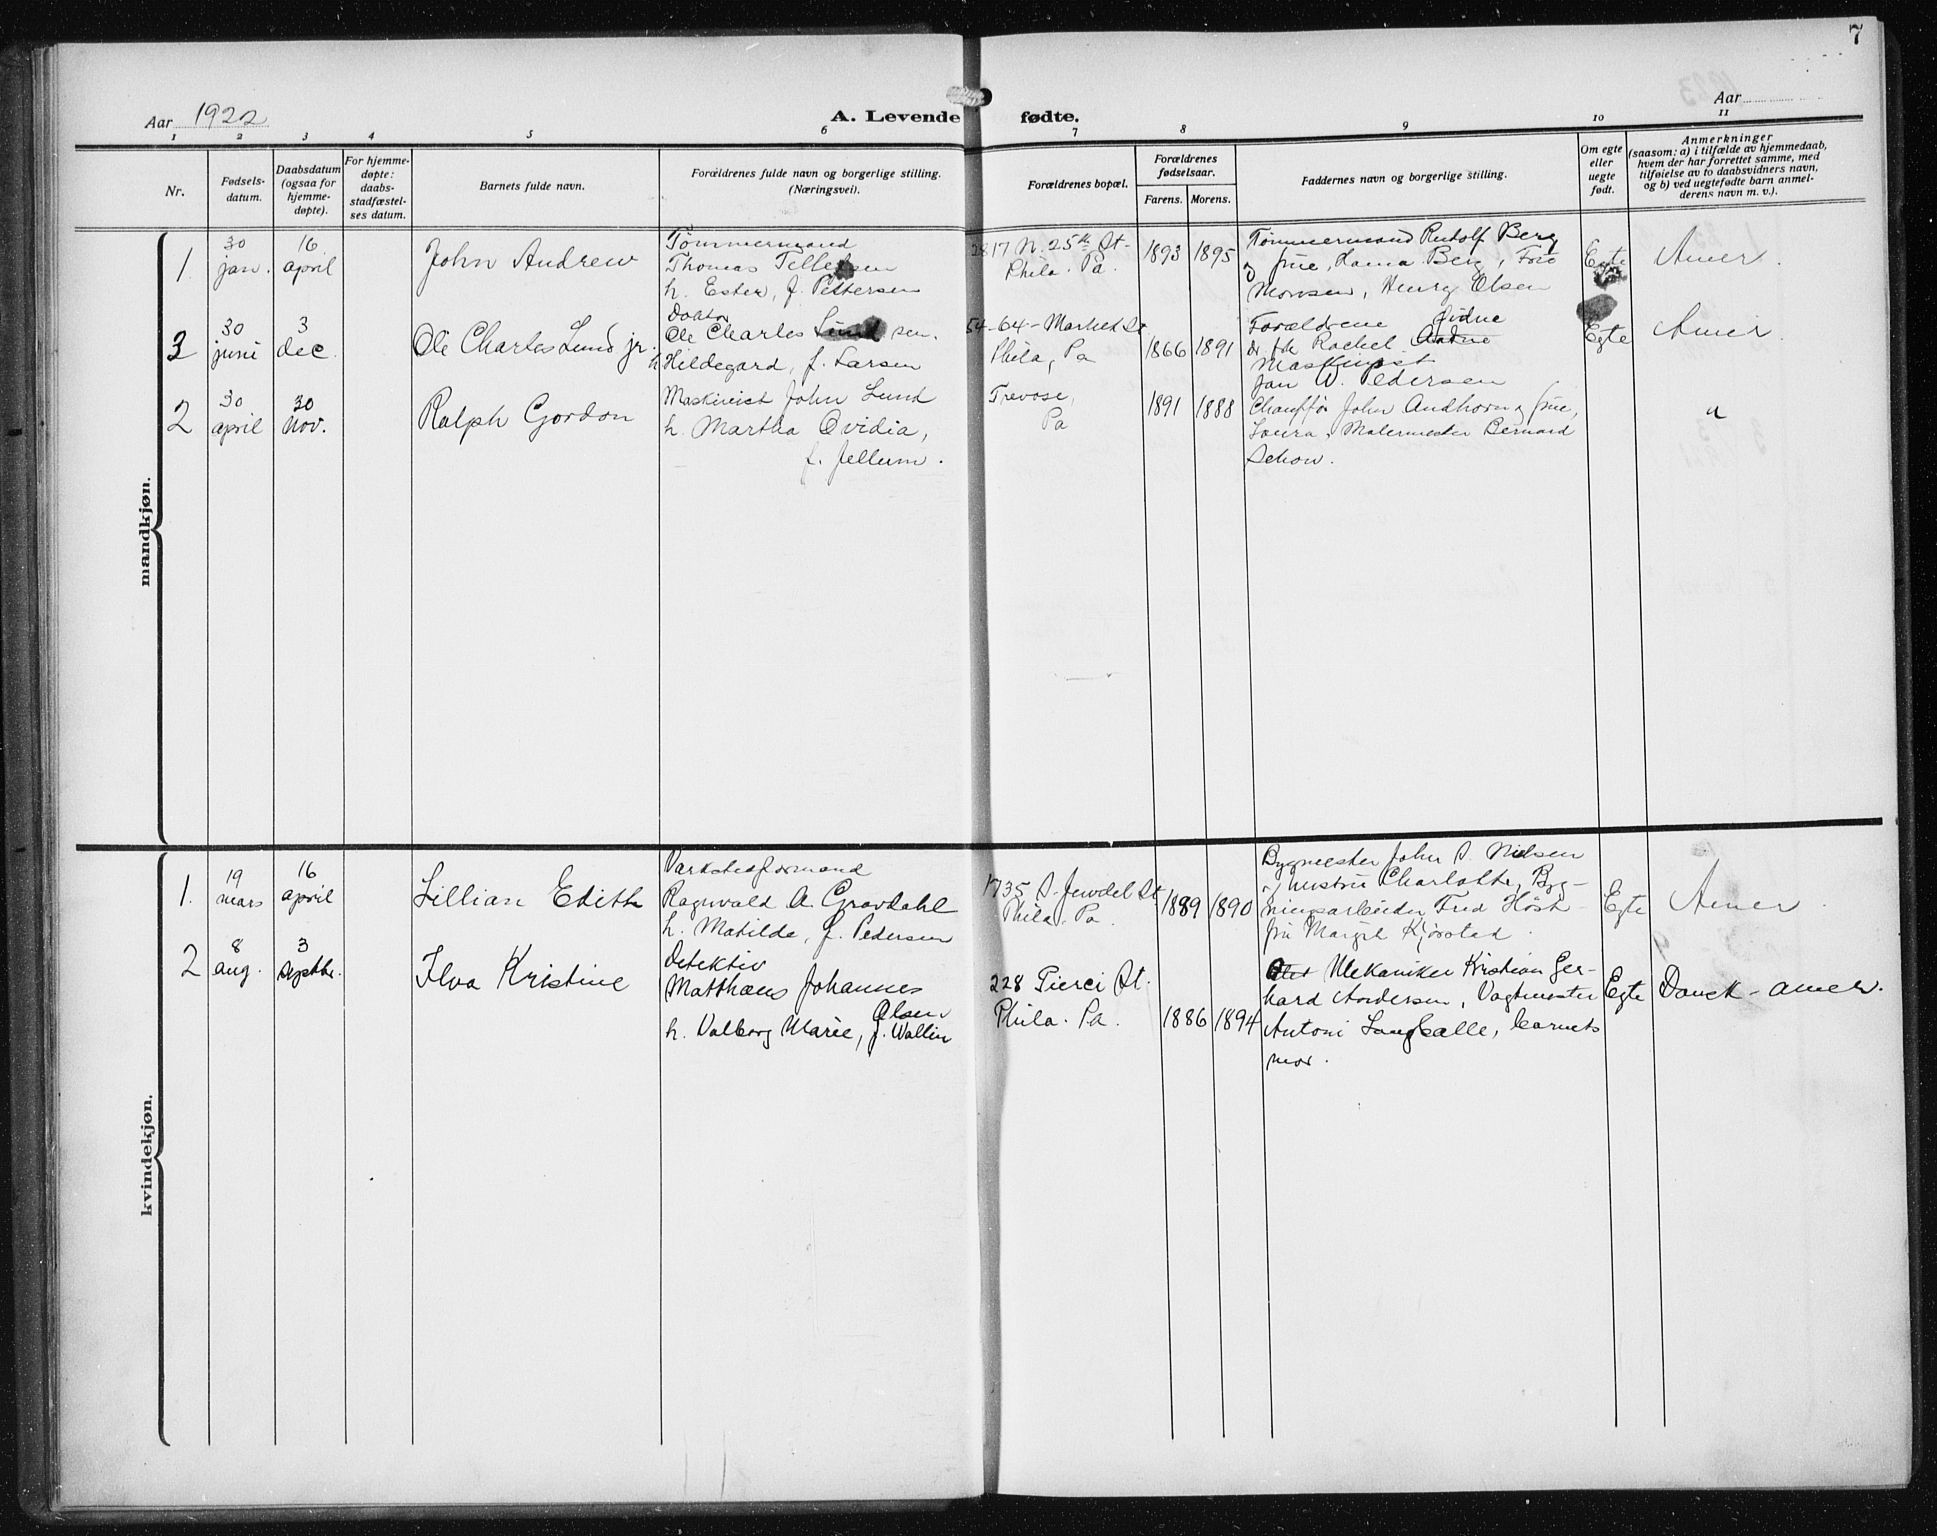 7
Aar 1922
A. Levende fødte.
Aar
1 2 3 4 5 6 7 8 9 10 11
Nr.
Fødsels-
datum.
Daabsdatum
(ogsaa for
hjemme-
døpte).
For hjemme-
døpte:
daabs-
stadfæstel-
ses datum.
Barnets fulde navn.
Forældrenes fulde navn og borgerlige stilling.
(Næringsvei).
Forældrenes bopæl.
Forældrenes
fødselsaar.
Farens. Morens.
Faddernes navn og borgerlige stilling.
Om egte
eller
uegte
født.
Anmerkninger
(saasom: a) i tilfælde av hjemmedaab,
hvem der har forrettet samme, med
tilføielse av to daabsvidners navn,
og b) ved uegtefødte barn anmel-
derens navn m. v.).
mandkjøn.
1.
30
jan.
16
april
John Andrew
Tømmermand
Thomas Tellefsen
h. Ester, f. Pettersen
2817 N. 25th St-
Phila. Pa.
1893 1895
Tømmermand Rudolf Berg
frue, Berg, Fru
Henry Olsen
Egte
Amer.
3
30
juni
3
dec.
Ole Charles Lund jr.
Doktor
Ole Charles Lund sen.
h Hildegard, f. Larsen
54-64-Market St
Phila, Pa
1866 1891
Forældrene
Rachel
Maskinist
Jan W. Pedersen
Egte
Amer.
2
30
april
30
Nov.
Ralph Gordon
Maskinist John Lund
h. Martha Ovidia,
f. Jellum.
Trevose,
Pa
1891 1888
Chauffør John Andhorn og frue,
Laura, Malermester Bernard
Schow.
"
kvindekjøn.
1.
19
mars
16
april
Lillian Edith
Verkstedformand
Ragnvald A. Gravdahl
h. Matilde, f. Pedersen
1735 S. Jewdel St
Phila. Pa.
1889 1890
Bygmester John S. Nielsen
og hustru Charlotte, Byg-
ningsarbeider Fred Höst
fru Margit Kjørstad.
Egte
Amer.
2
8
aug.
3
Septbr.
Elva Kristine
Detektiv
Matthæus Johannes
Olsen
h. Valborg Marie, f. Wallin
228 Pierce St.
Phila. Pa.
1886 1894
Mekaniker Kristian Ger-
hard Andersen, Vagtmester
Antoni Langballe, barnets
mor.
Egte
Dansk-amer.